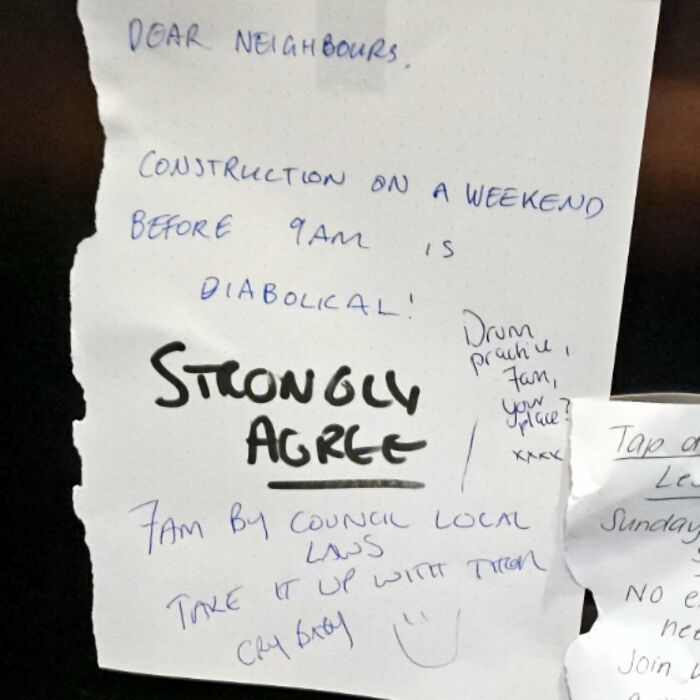 DEAR NEIGHBOURS.
CONSTRUCTION ON A WEEKEND
BEFORE 9AM IS
DIABOLICAL!
STRONGLY
AGREE
Drum
practice,
7am,
your
place?
xxxx
7AM BY COUNCIL LOCAL
LAWS
TAKE IT UP WITH THEM
CRY BABY
Tap
Sunday
No
Join